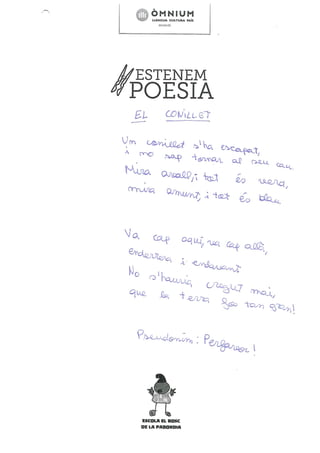 ÒMNIUM
LLENGUA CULTURA PAÍS
ESTENEM
POESIA
EL CONILLET
Un conillet s'ha escapat,
i no sap tornar al seu cau
Mira avall, i tot és verd,
mira amunt, i tot és blau
Va cap aquí, va cap allà,
enderrera i endavant
No s'hauria cregut mai,
que la terra fos tan gran!
Pseudònim: Pergamor!
ESCOLA EL BOSC
DE LA PABORDIA